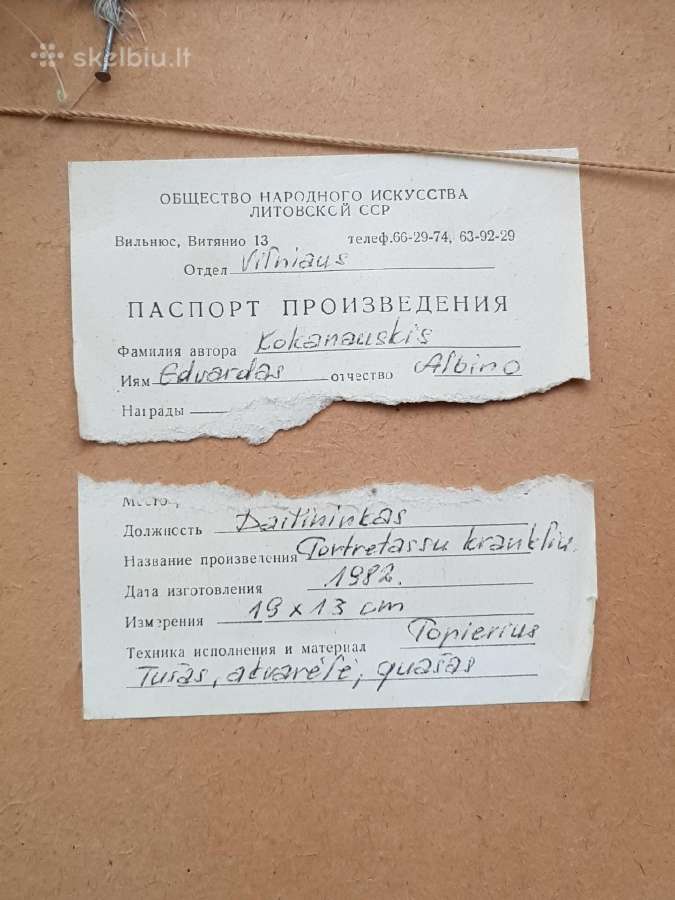 skelbiu.lt
ОБЩЕСТВО НАРОДНОГО ИСКУССТВА
ЛИТОВСКОЙ ССР
Вильнюс, Витянио 13 телеф.66-29-74, 63-92-29
Отдел Vilniaus
ПАСПОРТ ПРОИЗВЕДЕНИЯ
Фамилия автора Kokanauskis
Иям Edvardas отчество Albino
Награды
Место
Должность Dailininkas
Название произведения Portretas su krankliu.
Дата изготовления 1982.
Измерения 19 x 13 cm
Техника исполнения и материал Popierius
Tušas, akvarėlė, guašas